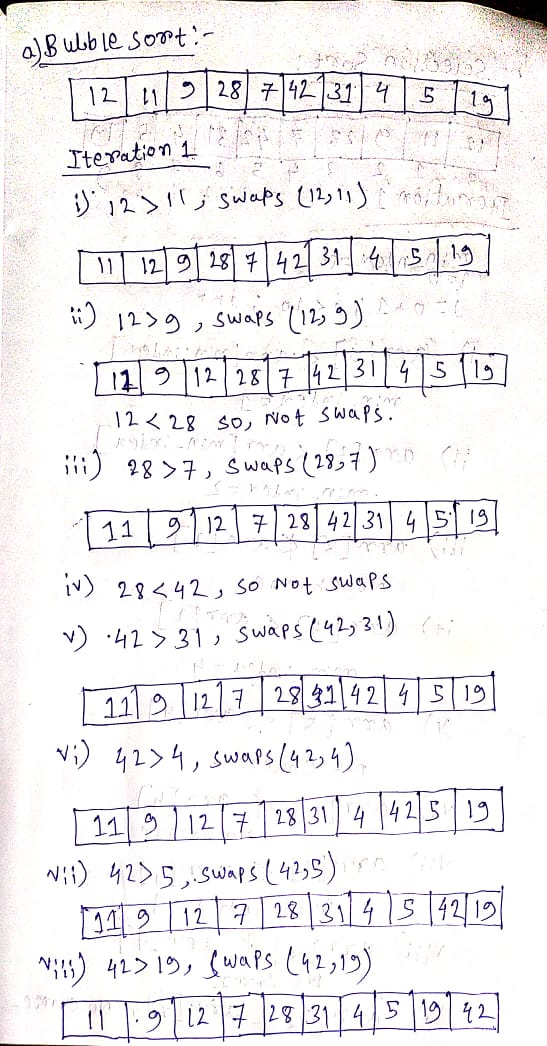 a) Bubble sort :-
12 11 9 28 7 42 31 4 5 19
Iteration 1
i) 12 > 11 ; swaps (12, 11)
11 12 9 28 7 42 31 4 5 19
ii) 12 > 9 , swaps (12, 9)
11 9 12 28 7 42 31 4 5 19
12 < 28 so, Not swaps.
iii) 28 > 7, swaps (28, 7)
11 9 12 7 28 42 31 4 5 19
iv) 28 < 42, so Not swaps
v) 42 > 31, swaps (42, 31)
11 9 12 7 28 31 42 4 5 19
vi) 42 > 4, swaps (42, 4)
11 9 12 7 28 31 4 42 5 19
vii) 42 > 5, swaps (42, 5)
11 9 12 7 28 31 4 5 42 19
viii) 42 > 19, swaps (42, 19)
11 9 12 7 28 31 4 5 19 42